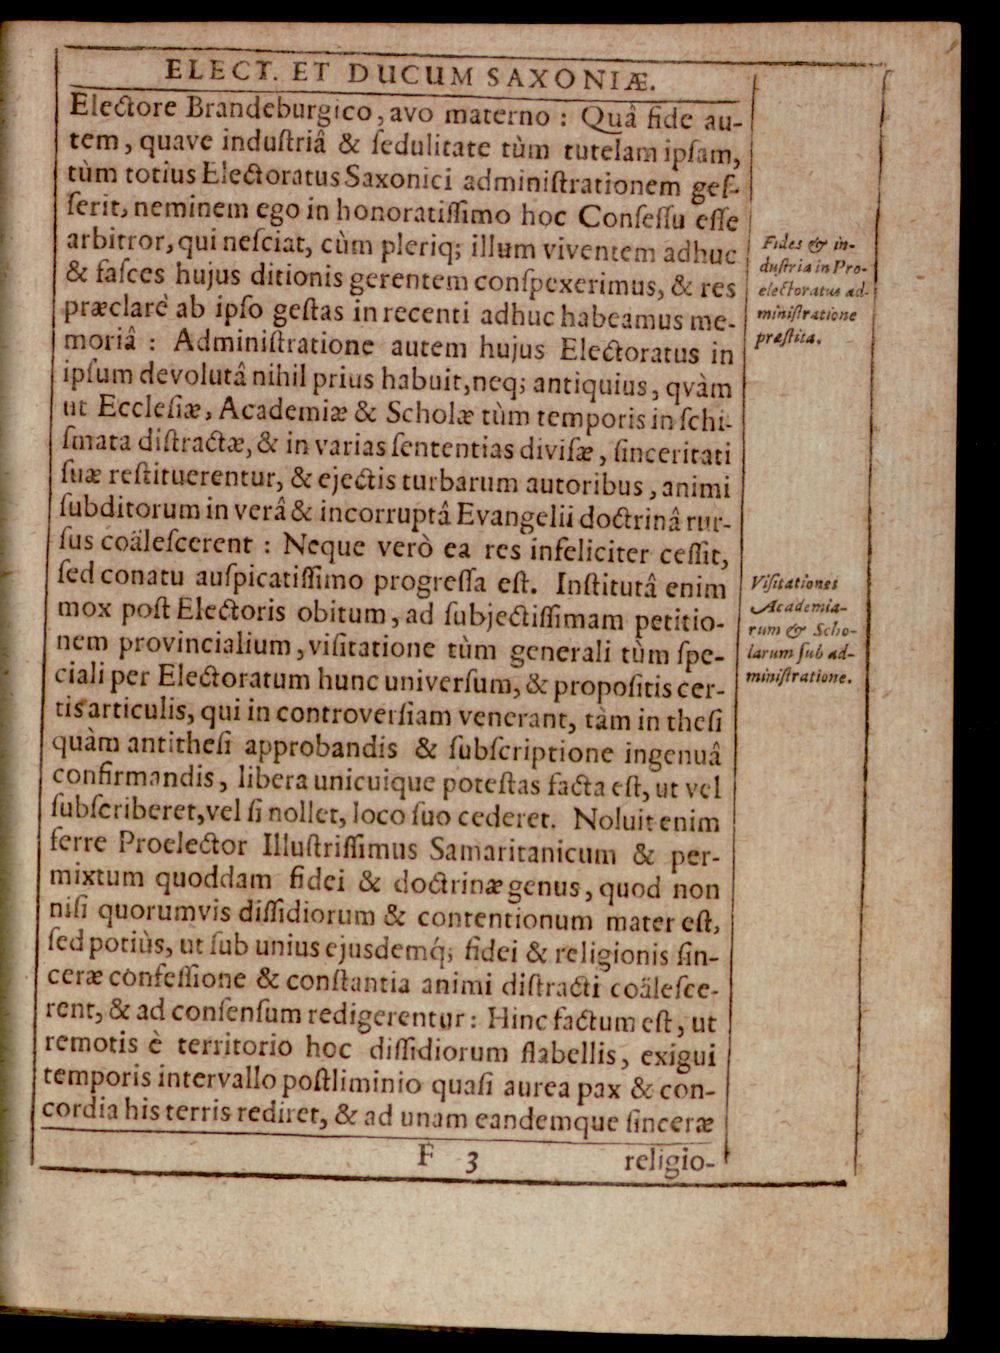 ELECT. ET DUCUM SAXONIÆ.
Electore Brandeburgico, avo materno : Quâ fide au-
tem, quave induſtriâ & ſedulitate tùm tutelam ipſam,
tùm totius Electoratus Saxonici adminiſtrationem geſ-
ſerit, neminem ego in honoratiſſimo hoc Conſeſſu eſſe
arbitror, qui neſciat, cùm pleriq; illum viventem adhuc
& faſces hujus ditionis gerentem conſpexerimus, & res
præclarè ab ipſo geſtas in recenti adhuc habeamus me-
moriâ : Adminiſtratione autem hujus Electoratus in
ipſum devolutâ nihil prius habuit, neq; antiquius, qvàm
ut Eccleſiæ, Academiæ & Scholæ tùm temporis in ſchi-
ſmata diſtractæ, & in varias ſententias diviſæ, ſinceritati
ſuæ reſtituerentur, & ejectis turbarum autoribus, animi
ſubditorum in verâ & incorruptâ Evangelii doctrinâ rur-
ſus coäleſcerent : Neque verò ea res infeliciter ceſſit,
ſed conatu auſpicatiſſimo progreſſa eſt. Inſtitutâ enim
mox poſt Electoris obitum, ad ſubjectiſſimam petitio-
nem provincialium, viſitatione tùm generali tùm ſpe-
ciali per Electoratum hunc univerſum, & propoſitis cer-
tis articulis, qui in controverſiam venerant, tàm in theſi
quàm antitheſi approbandis & ſubſcriptione ingenuâ
confirmandis, libera unicuique poteſtas facta eſt, ut vel
ſubſcriberet, vel ſi nollet, loco ſuo cederet. Noluit enim
ferre Proelector Illuſtriſſimus Samaritanicum & per-
mixtum quoddam fidei & doctrinæ genus, quod non
niſi quorumvis diſſidiorum & contentionum mater eſt,
ſed potiùs, ut ſub unius ejusdemq́; fidei & religionis ſin-
ceræ confeſſione & conſtantia animi diſtracti coäleſce-
rent, & ad conſenſum redigerentur : Hinc factum eſt, ut
remotis è territorio hoc diſſidiorum flabellis, exigui
temporis intervallo poſtliminio quaſi aurea pax & con-
cordia his terris rediret, & ad unam eandemque ſinceræ
F 3 religio-
Fides & in-
duſtria in Pro-
electoratus ad-
miniſtratione
præſtita.
Viſitationes
Academia-
rum & Scho-
larum ſub ad-
miniſtratione.